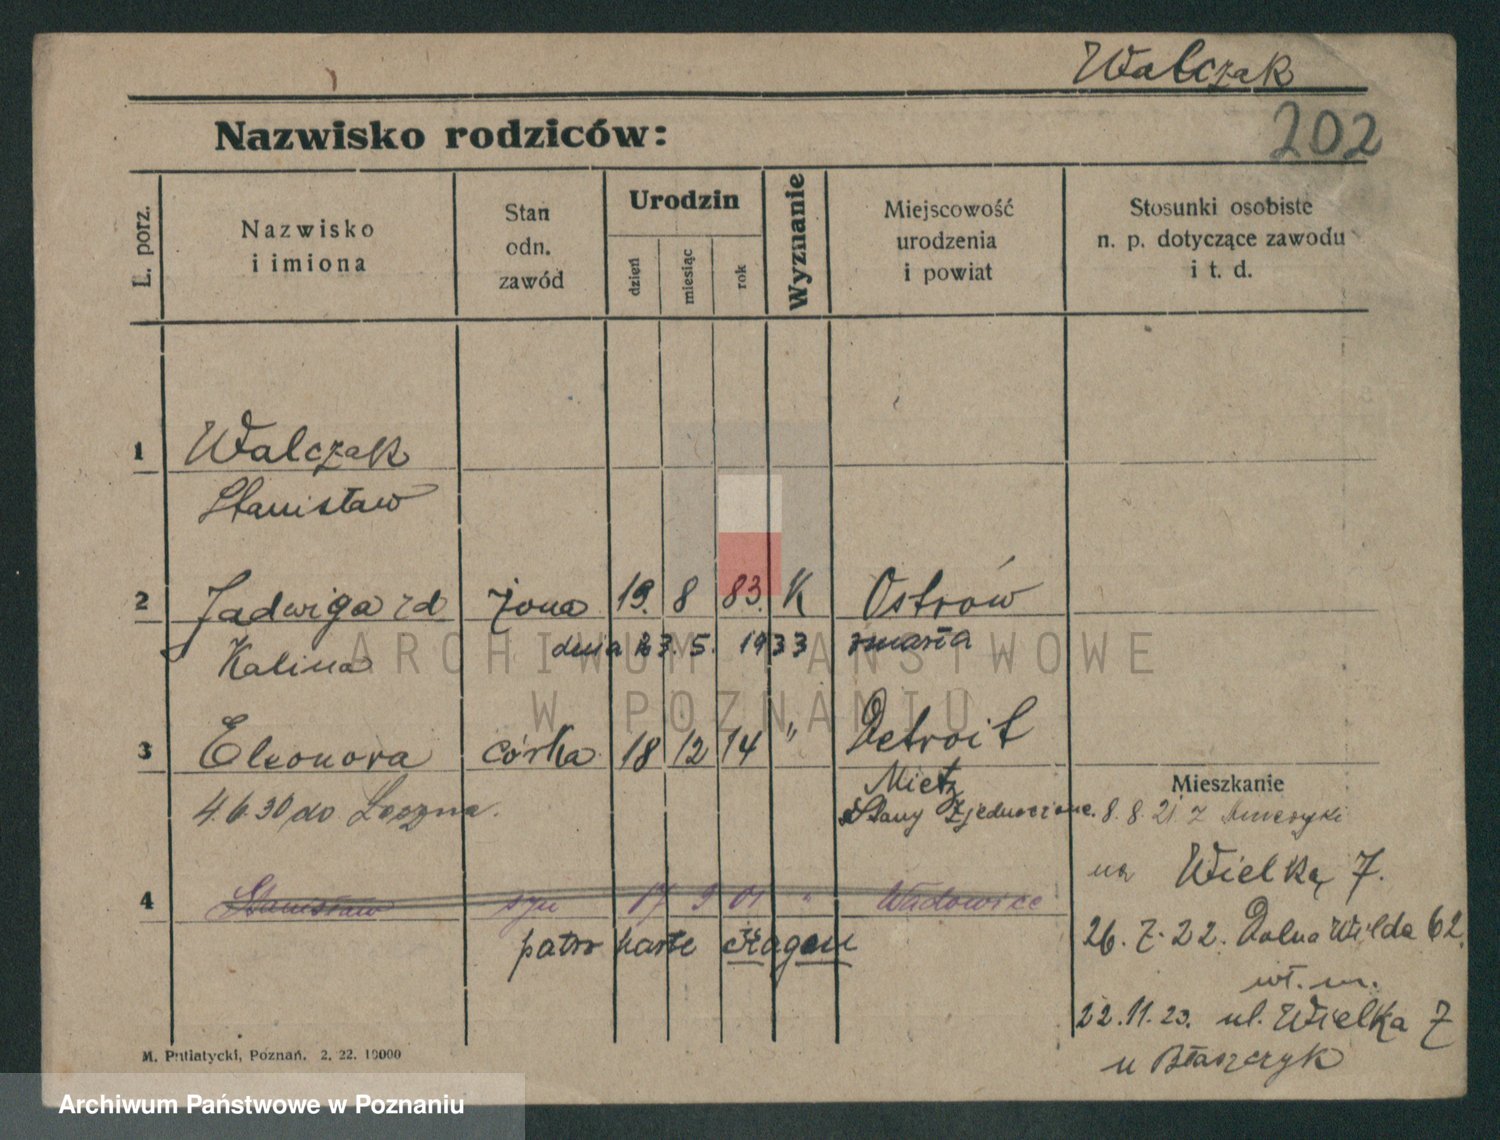 Walczak
202
Nazwisko rodziców:
L. porz.
Nazwisko
i imiona
Stan
odn.
zawód
Urodzin
dzień
miesiąc
rok
Wyznanie
Miejscowość
urodzenia
i powiat
Stosunki osobiste
n. p. dotyczące zawodu
i t. d.
1 Walczak
Stanisław
2 Jadwiga zd żona 19. 8 83. K Ostrów
Kalina dnia 23. 5. 1933 zmarła
3 Eleonora córka 18 12 14 " Detroit
4.6.30 do
Stany Zjednoczone.
Mieszkanie
8. 8. 21 z Ameryki
na Wielką 7.
4 Stanisław syn 17 9 01 " Wadowice
patrz karte
26. 7. 22. Dolna Wilda 62.
22. 11. 23. ul. Wielka 7
u Błaszczyk
M. Putiatycki, Poznań. 2. 22. 10000
ARCHIWUM PAŃSTWOWE
W POZNANIU
Archiwum Państwowe w Poznaniu